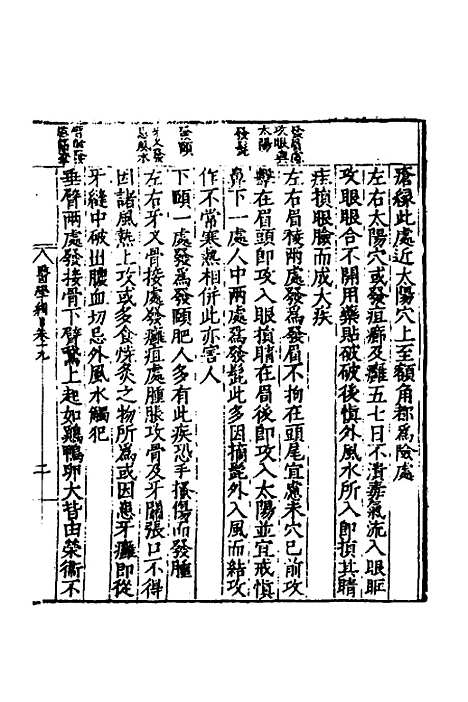 瘡緣此處近太陽穴上至額角都為險處
左右太陽穴或發疽癤及癰五七日不潰毒氣流入眼眶
攻眼眼合不開用藥貼破破後慎外風水所入即損其睛
疾損眼瞼而成大疾
發眉
攻眼與
太陽
左右眉稜兩處發為發眉不拘在頭尾宜慮未穴已前攻
擊在眉頭即攻入眼損睛在眉後即攻入太陽並宜戒慎
發髭
鼻下一處人中兩處為發髭此多因摘髭外入風而結攻
作不常寒熱相併此亦害人
發頤
下頤一處發為發頤肥人多有此疾恐手搔傷而發腫
牙叉發
忌風水
左右牙叉骨接處發癰疽處腫脹攻骨及牙關張口不得
因諸風熱上攻或多食煿炙之物所為或因患牙癰即從
牙縫中破出膿血切忌外風水觸犯
垂臂兩處發接骨下臂臑上起如雞鴨卵大皆由榮衛不
醫學綱目卷十九
二